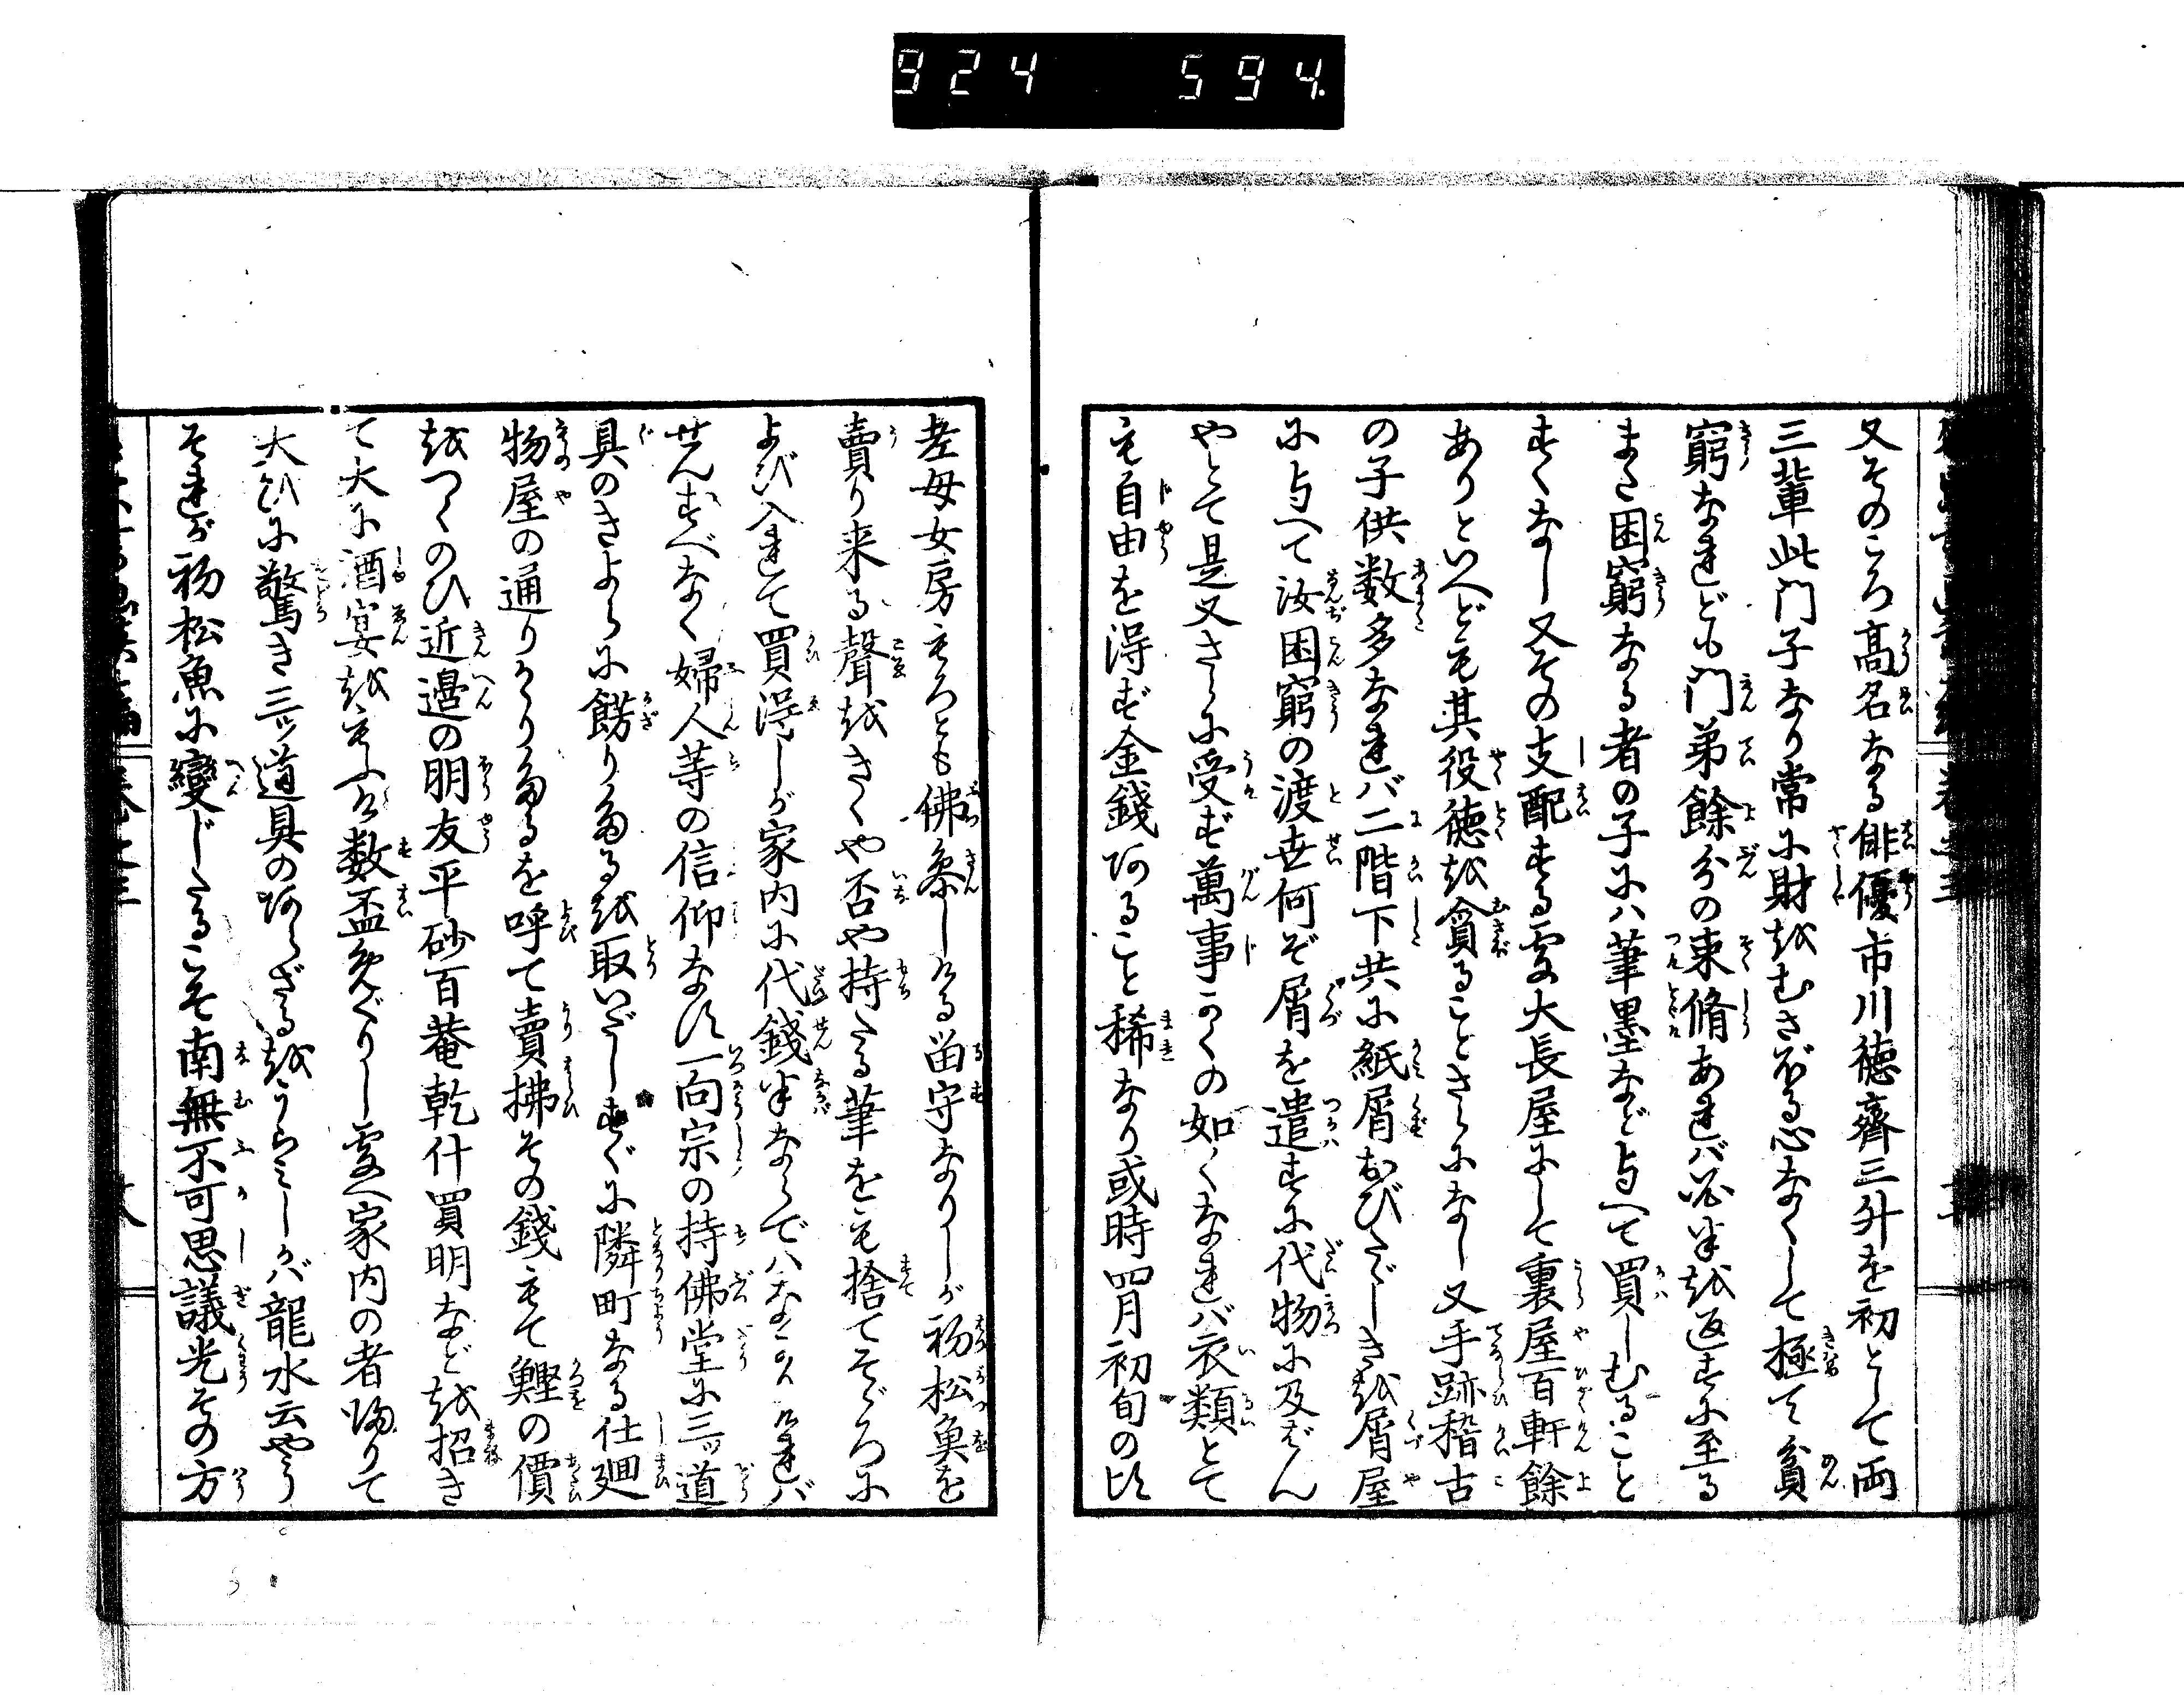 924 594.
又そのころ高名なる俳優市川徳齊三升を初として両
三輩此門子なり常に財をむさぼる心なくして極て貧
窮なれども門弟餘分の束脩あれバ必半を返すに至る
また困窮なる者の子にハ筆墨など与へて買しむること
すくなし又その支配する處大長屋にして裏屋百軒餘
ありといへども其役徳を貪ることさらになし又手跡稽古
の子供数多なれバ二階下共に紙屑おびたゞしきを屑屋
に与へて汝困窮の渡世何ぞ屑を遣すに代物に及ばん
やとて是又さらに受ず萬事かくの如くなれバ衣類とて
も自由を得ず金錢あること稀なり或時四月初旬の比
老母女房もろとも佛参しける留守なりしが初松魚を
賣り来る聲をきくや否や持たる筆をも捨てそゞろに
よび入れて買得しが家内に代錢半ならでハなかりけれバ
せんすべなく婦人等の信仰なす一向宗の持佛堂に三ッ道
具のきよらに餝りあるを取いだしすぐに隣町なる仕廻
物屋の通りかゝりあるを呼て賣拂その錢もて鰹の價
をつくのひ近邉の明友平砂百菴乾什買明などを招き
て大に酒宴をもよふし数盃めぐりし處へ家内の者帰りて
大ひに驚き三ッ道具のあらざるをうらミしかバ龍水云やう
それが初松魚に變じたるこそ南無不可思議光その方